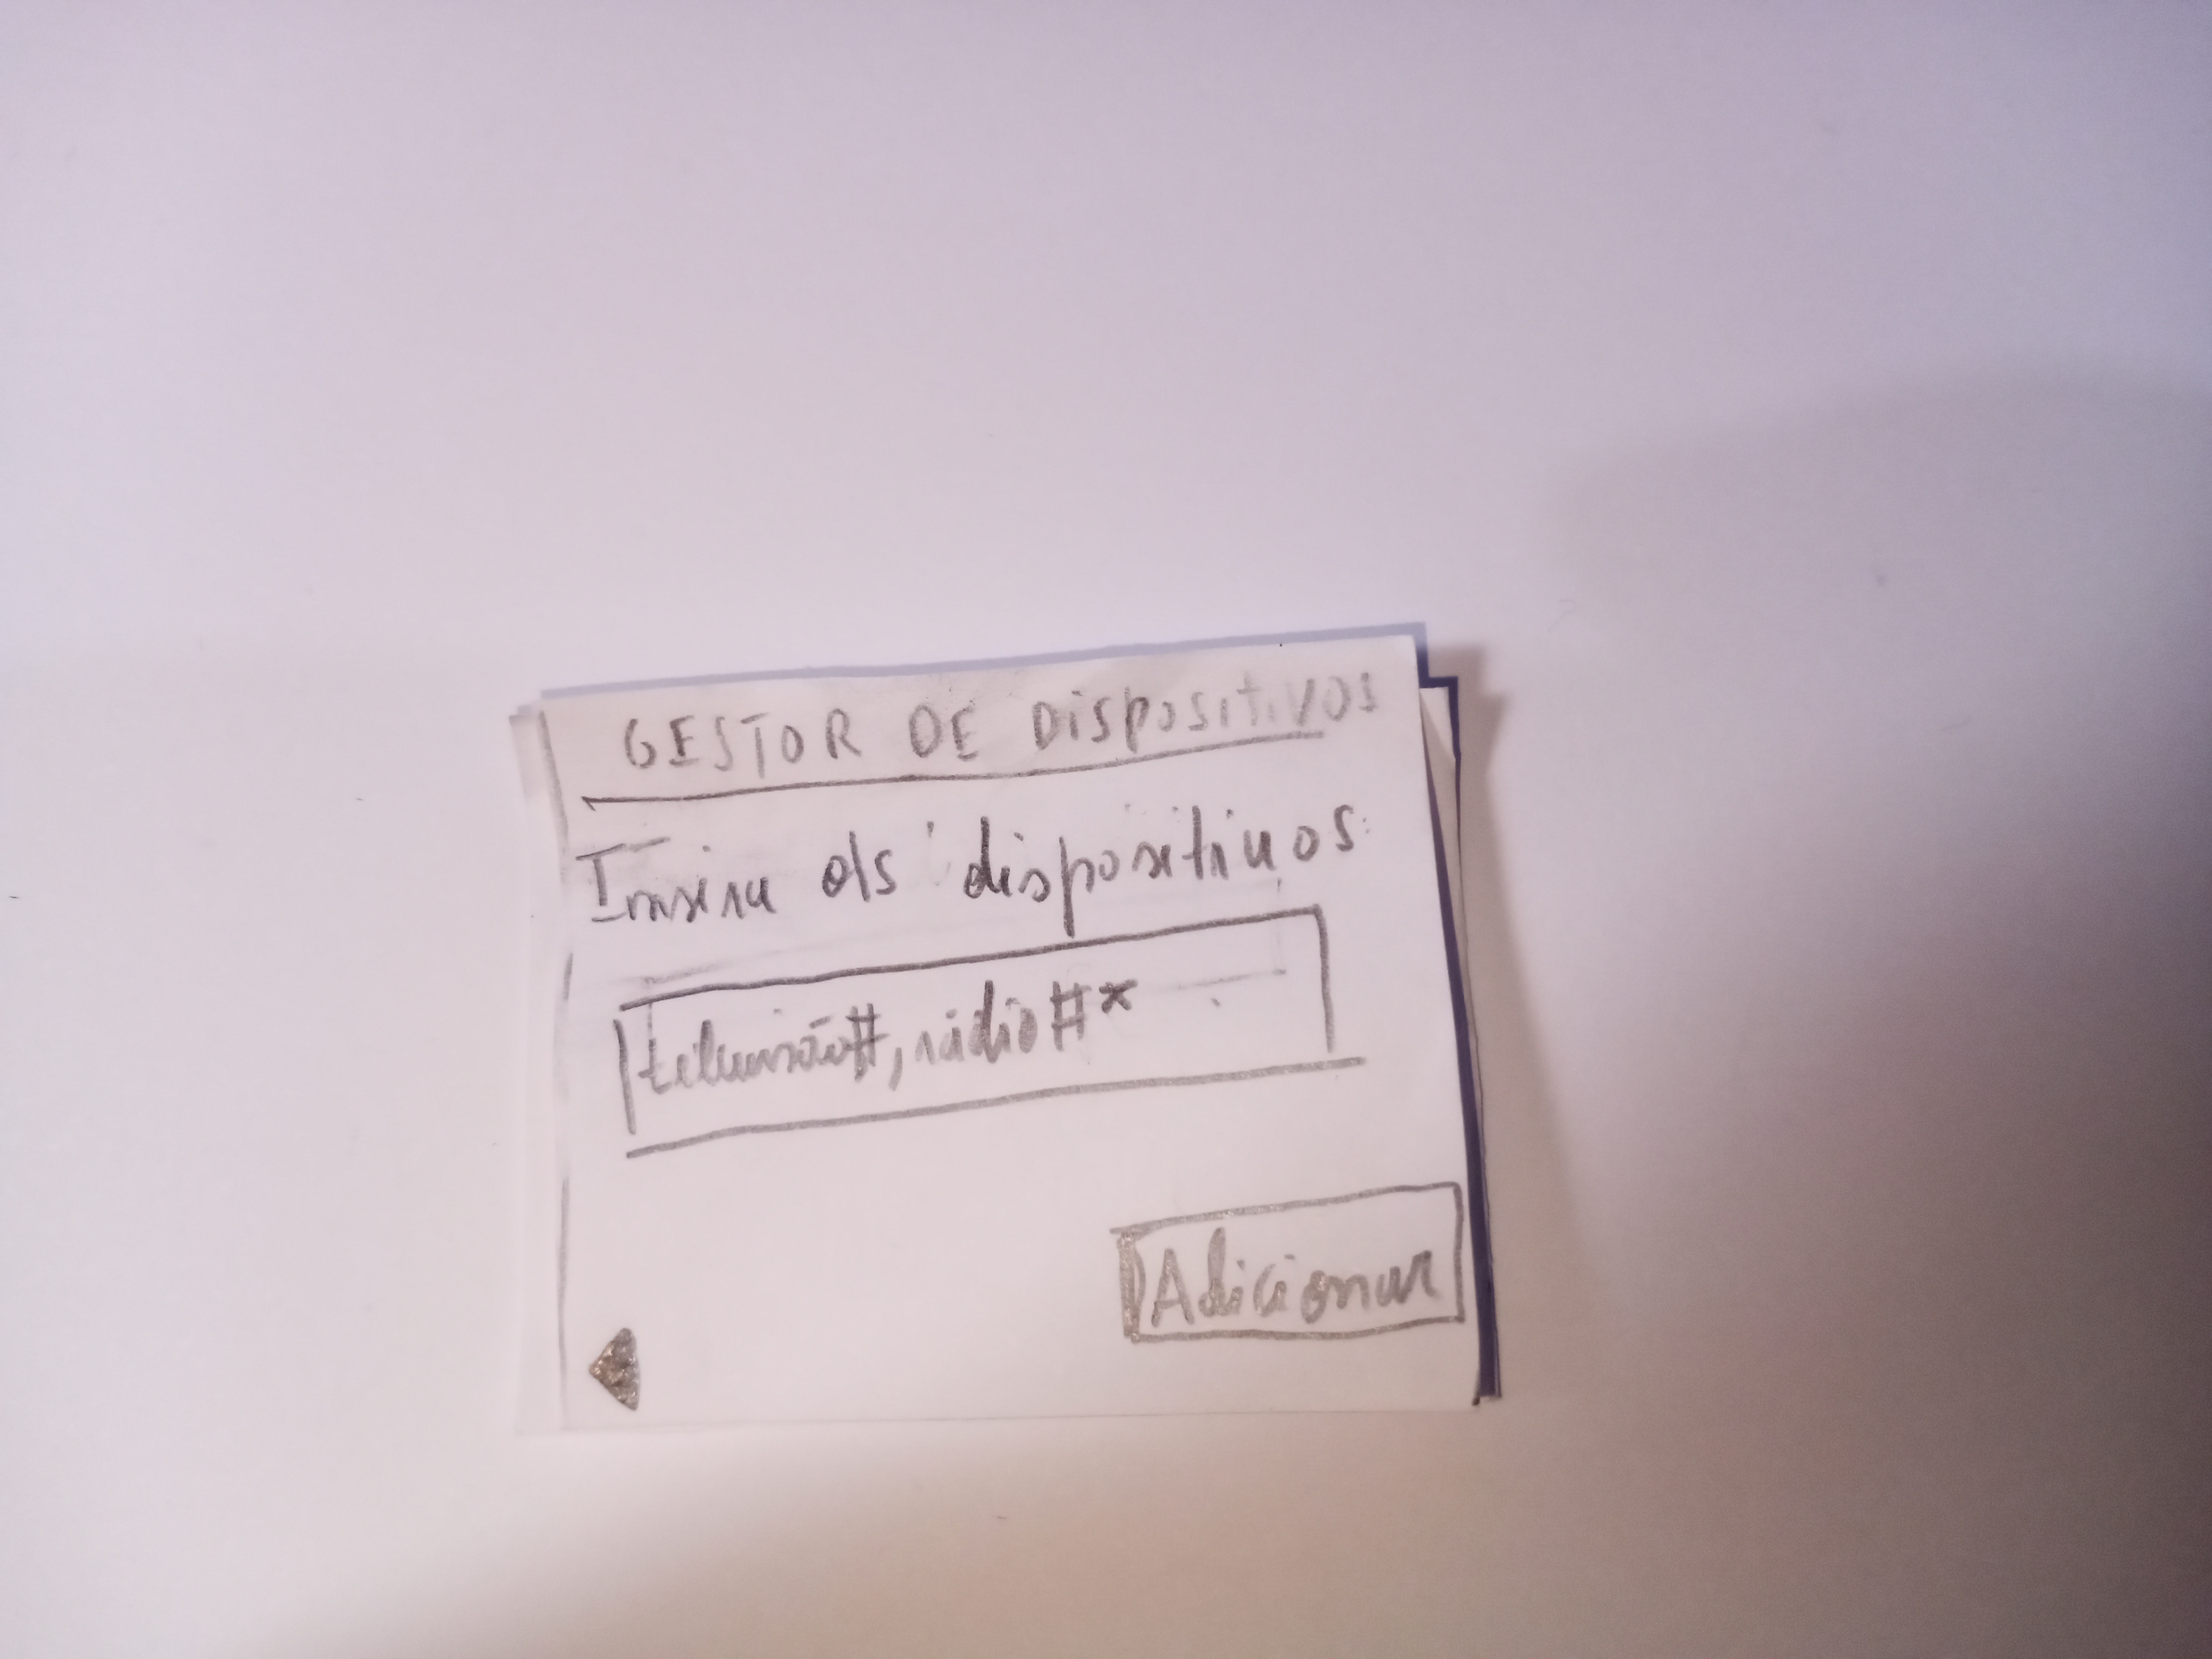 GESTOR DE DispositiVOS
Insira os dispositivos:
televisão#, rádio#*
Adicionar